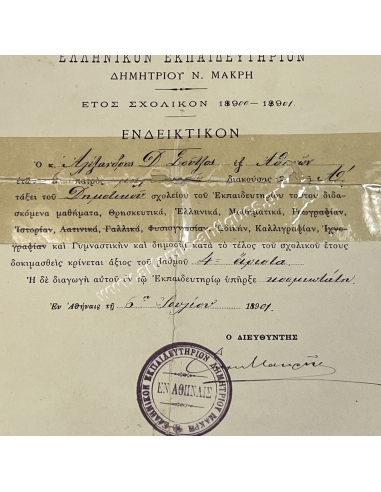 ΕΛΛΗΝΙΚΟΝ ΕΚΠΑΙΔΕΥΤΗΡΙΟΝ
ΔΗΜΗΤΡΙΟΥ Ν. ΜΑΚΡΗ
ΕΤΟΣ ΣΧΟΛΙΚΟΝ 1900–1901
ΕΝΔΕΙΚΤΙΚΟΝ
Ὁ κ. Ἀλέξανδρος Δ. Σοῦτζος ἐξ Ἀθηνῶν
διακούσας
τάξει τοῦ Δημοτικοῦ σχολείου τοῦ Ἐκπαιδευτηρίου τούτου διδα-
σκόμενα μαθήματα, Θρησκευτικά, Ἑλληνικά, Μαθηματικά, Γεωγραφίαν,
Ἱστορίαν, Λατινικά, Γαλλικά, Φυσιογνωσίαν, Ὠδικήν, Καλλιγραφίαν, Ἰχνο-
γραφίαν καὶ Γυμναστικὴν καὶ δημοσίᾳ κατὰ τὸ τέλος τοῦ σχολικοῦ ἔτους
δοκιμασθεὶς κρίνεται ἄξιος τοῦ βαθμοῦ 4 = ἄριστα.
Ἡ δὲ διαγωγὴ αὐτοῦ ἐν τῷ Ἐκπαιδευτηρίῳ ὑπῆρξε κοσμιωτάτη.
Ἐν Ἀθήναις τῇ 6ῃ Ἰουλίου 1901
Ο ΔΙΕΥΘΥΝΤΗΣ
Μακρῆς
ΕΛΛΗΝΙΚΟΝ ΕΚΠΑΙΔΕΥΤΗΡΙΟΝ ΔΗΜΗΤΡΙΟΥ ΜΑΚΡΗ
ΕΝ ΑΘΗΝΑΙΣ